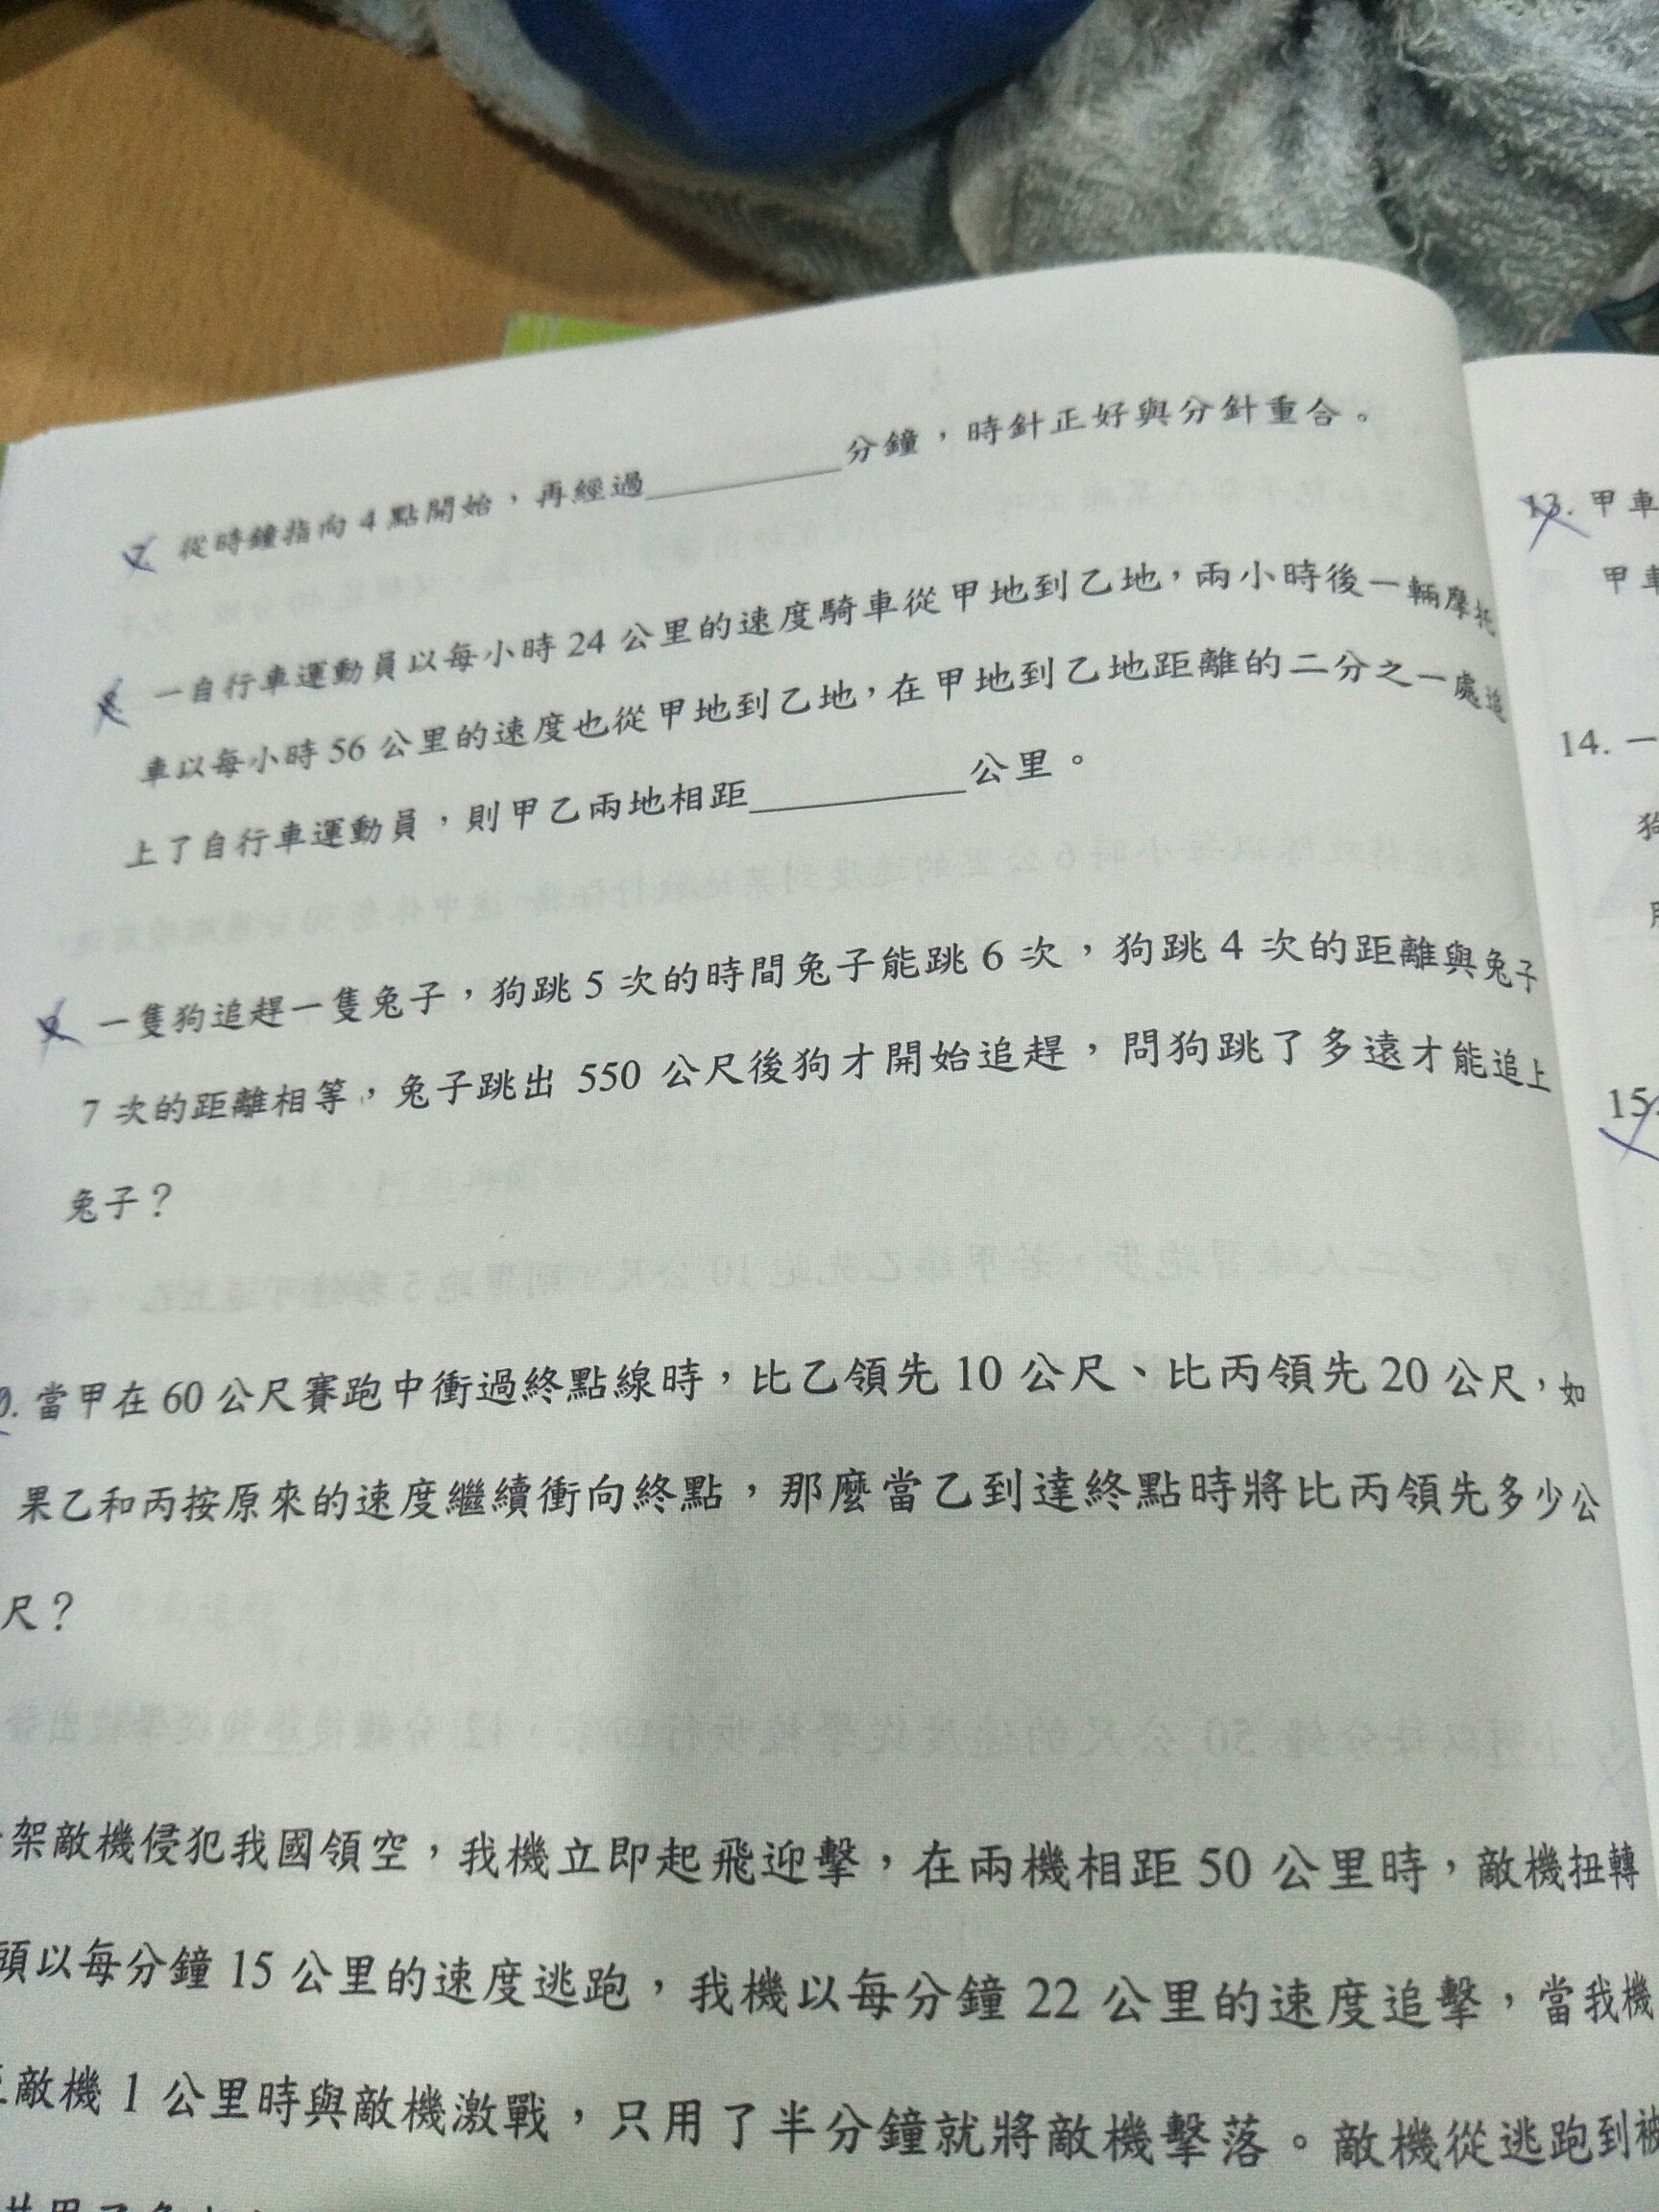 7. 從時鐘指向 4 點開始,再經過__________分鐘,時針正好與分針重合。
一自行車運動員以每小時 24 公里的速度騎車從甲地到乙地,兩小時後一輛摩托
車以每小時 56 公里的速度也從甲地到乙地,在甲地到乙地距離的二分之一處追
上了自行車運動員,則甲乙兩地相距__________公里。
9. 一隻狗追趕一隻兔子,狗跳 5 次的時間兔子能跳 6 次,狗跳 4 次的距離與兔子
7 次的距離相等,兔子跳出 550 公尺後狗才開始追趕,問狗跳了多遠才能追上
兔子?
0. 當甲在 60 公尺賽跑中衝過終點線時,比乙領先 10 公尺、比丙領先 20 公尺,如
果乙和丙按原來的速度繼續衝向終點,那麼當乙到達終點時將比丙領先多少公
尺?
架敵機侵犯我國領空,我機立即起飛迎擊,在兩機相距 50 公里時,敵機扭轉
頭以每分鐘 15 公里的速度逃跑,我機以每分鐘 22 公里的速度追擊,當我機
敵機 1 公里時與敵機激戰,只用了半分鐘就將敵機擊落。敵機從逃跑到被
13. 甲車
甲車
14. 一
狗
15.